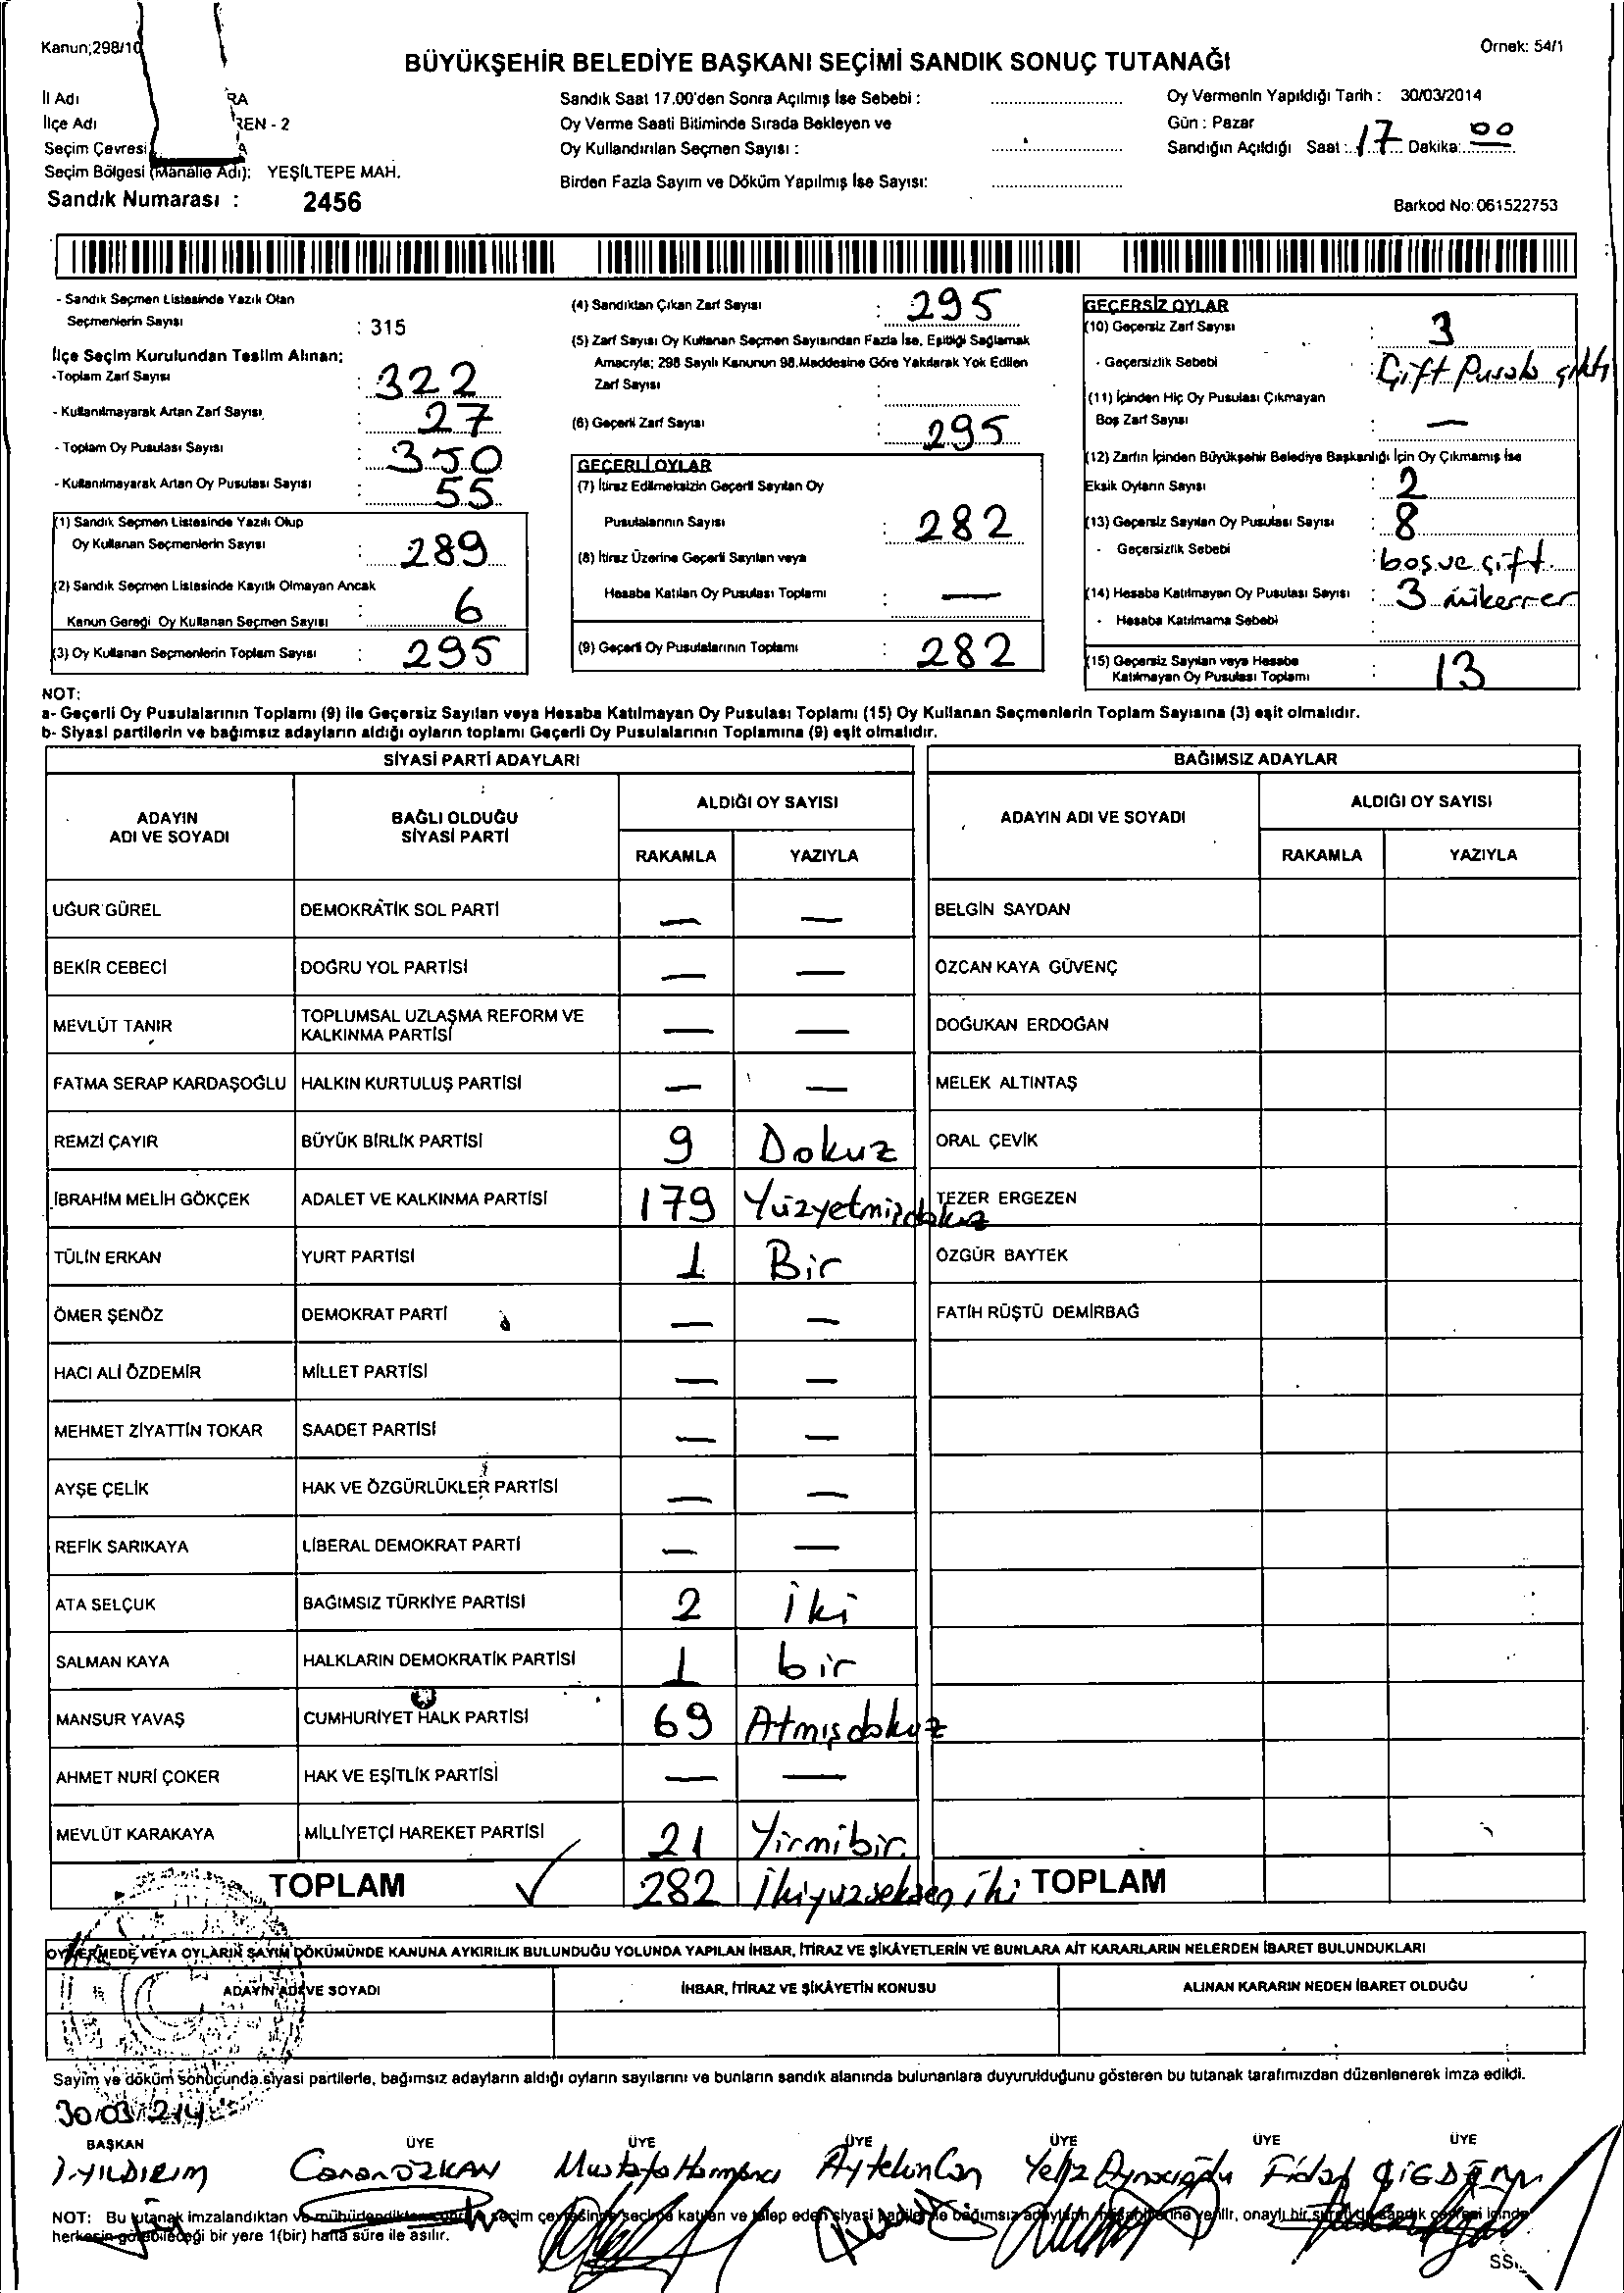 Kanun;298/10
Örnek: 54/1
BÜYÜKŞEHİR BELEDİYE BAŞKANI SEÇİMİ SANDIK SONUÇ TUTANAĞI
İl Adı RA
Sandık Saat 17.00'den Sonra Açılmış İse Sebebi :
Oy Vermenin Yapıldığı Tarih : 30/03/2014
İlçe Adı REN - 2
Oy Verme Saati Bitiminde Sırada Bekleyen ve
Gün : Pazar
Seçim Çevresi A
Oy Kullandırılan Seçmen Sayısı :
Sandığın Açıldığı Saat : 17 Dakika: 00
Seçim Bölgesi (Mahalle Adı): YEŞİLTEPE MAH.
Birden Fazla Sayım ve Döküm Yapılmış İse Sayısı:
Sandık Numarası : 2456
Barkod No: 061522753
- Sandık Seçmen Listesinde Yazılı Olan
Seçmenlerin Sayısı : 315
İlçe Seçim Kurulundan Teslim Alınan;
-Toplam Zarf Sayısı : 322
- Kullanılmayarak Artan Zarf Sayısı : 27
- Toplam Oy Pusulası Sayısı : 350
- Kullanılmayarak Artan Oy Pusulası Sayısı : 55
(1) Sandık Seçmen Listesinde Yazılı Olup
Oy Kullanan Seçmenlerin Sayısı : 289
(2) Sandık Seçmen Listesinde Kayıtlı Olmayan Ancak
Kanun Gereği Oy Kullanan Seçmen Sayısı : 6
(3) Oy Kullanan Seçmenlerin Toplam Sayısı : 295
(4) Sandıktan Çıkan Zarf Sayısı : 295
(5) Zarf Sayısı Oy Kullanan Seçmen Sayısından Fazla İse, Eşitliği Sağlamak
Amacıyla; 298 Sayılı Kanunun 98.Maddesine Göre Yakılarak Yok Edilen
Zarf Sayısı :
(6) Geçerli Zarf Sayısı : 295
GEÇERLİ OYLAR
(7) İtiraz Edilmeksizin Geçerli Sayılan Oy
Pusulalarının Sayısı : 282
(8) İtiraz Üzerine Geçerli Sayılan veya
Hesaba Katılan Oy Pusulası Toplamı : —
(9) Geçerli Oy Pusulalarının Toplamı : 282
GEÇERSİZ OYLAR
(10) Geçersiz Zarf Sayısı : 3
- Geçersizlik Sebebi : Çift Pusula çıktı
(11) İçinden Hiç Oy Pusulası Çıkmayan
Boş Zarf Sayısı : —
(12) Zarfın İçinden Büyükşehir Belediye Başkanlığı İçin Oy Çıkmamış İse
Eksik Oyların Sayısı : 2
(13) Geçersiz Sayılan Oy Pusulası Sayısı : 8
- Geçersizlik Sebebi : boş ve çift
(14) Hesaba Katılmayan Oy Pusulası Sayısı : 3 mükerrer
- Hesaba Katılmama Sebebi :
(15) Geçersiz Sayılan veya Hesaba
Katılmayan Oy Pusulası Toplamı : 13
NOT:
a- Geçerli Oy Pusulalarının Toplamı (9) ile Geçersiz Sayılan veya Hesaba Katılmayan Oy Pusulası Toplamı (15) Oy Kullanan Seçmenlerin Toplam Sayısına (3) eşit olmalıdır.
b- Siyasi partilerin ve bağımsız adayların aldığı oyların toplamı Geçerli Oy Pusulalarının Toplamına (9) eşit olmalıdır.
SİYASİ PARTİ ADAYLARI
BAĞIMSIZ ADAYLAR
ADAYIN ADI VE SOYADI
BAĞLI OLDUĞU SİYASİ PARTİ
ALDIĞI OY SAYISI
ADAYIN ADI VE SOYADI
ALDIĞI OY SAYISI
RAKAMLA YAZIYLA
RAKAMLA YAZIYLA
UĞUR GÜREL DEMOKRATİK SOL PARTİ — — BELGİN SAYDAN
BEKİR CEBECİ DOĞRU YOL PARTİSİ — — ÖZCAN KAYA GÜVENÇ
MEVLÜT TANIR TOPLUMSAL UZLAŞMA REFORM VE KALKINMA PARTİSİ — — DOĞUKAN ERDOĞAN
FATMA SERAP KARDAŞOĞLU HALKIN KURTULUŞ PARTİSİ — — MELEK ALTINTAŞ
REMZİ ÇAYIR BÜYÜK BİRLİK PARTİSİ 9 Dokuz ORAL ÇEVİK
İBRAHİM MELİH GÖKÇEK ADALET VE KALKINMA PARTİSİ 179 Yüzyetmişdokuz TEZER ERGEZEN
TÜLİN ERKAN YURT PARTİSİ 1 Bir ÖZGÜR BAYTEK
ÖMER ŞENÖZ DEMOKRAT PARTİ — — FATİH RÜŞTÜ DEMİRBAĞ
HACI ALİ ÖZDEMİR MİLLET PARTİSİ — —
MEHMET ZİYATTİN TOKAR SAADET PARTİSİ — —
AYŞE ÇELİK HAK VE ÖZGÜRLÜKLER PARTİSİ — —
REFİK SARIKAYA LİBERAL DEMOKRAT PARTİ — —
ATA SELÇUK BAĞIMSIZ TÜRKİYE PARTİSİ 2 iki
SALMAN KAYA HALKLARIN DEMOKRATİK PARTİSİ 1 bir
MANSUR YAVAŞ CUMHURİYET HALK PARTİSİ 69 Atmışdokuz
AHMET NURİ ÇOKER HAK VE EŞİTLİK PARTİSİ — —
MEVLÜT KARAKAYA MİLLİYETÇİ HAREKET PARTİSİ 21 Yirmibir
TOPLAM 282 İkiyüzseksen iki TOPLAM
OY VERMEDE VEYA OYLARIN SAYIM DÖKÜMÜNDE KANUNA AYKIRILIK BULUNDUĞU YOLUNDA YAPILAN İHBAR, İTİRAZ VE ŞİKÂYETLERİN VE BUNLARA AİT KARARLARIN NELERDEN İBARET BULUNDUKLARI
ADAYIN ADI VE SOYADI İHBAR, İTİRAZ VE ŞİKÂYETİN KONUSU ALINAN KARARIN NEDEN İBARET OLDUĞU
Sayım ve döküm sonucunda siyasi partilerle, bağımsız adayların aldığı oyların sayılarını ve bunların sandık alanında bulunanlara duyurulduğunu gösteren bu tutanak tarafımızdan düzenlenerek imza edildi.
30/03/214
BAŞKAN ÜYE ÜYE ÜYE ÜYE ÜYE ÜYE
İ.YILDIRIM Canan ÖZKAN Mustafa Aytekin Can Yeliz
NOT: Bu tutanak imzalandıktan ve mühürlendikten sonra seçim çevresinde seçime katılan ve talep eden siyasi partiler ile bağımsız adayların verilir, onaylı bir sandık çevresi içinde
herkesin görebileceği bir yere 1(bir) hafta süre ile asılır.